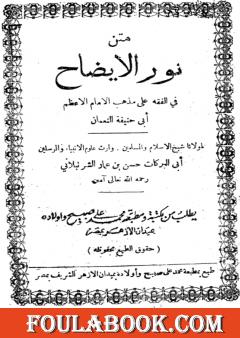 متن
نور الايضاح
فى الفقه على مذهب الامام الاعظم
أبى حنيفة النعمان
لمولانا شيخ الاسلام والمسلمين . وارث علوم الانبياء والمرسلين
أبى البركات حسن بن عمار الشرنبلالى
رحمه الله تعالى آمين
يطلب من مكتبة ومطبعة محمد على صبيح وأولاده
بميدان الأزهر بمصر
( حقوق الطبع محفوظة )
طبع بمطبعة محمد على صبيح وأولاده بميدان الازهر الشريف بمصر
FOULABOOK.COM